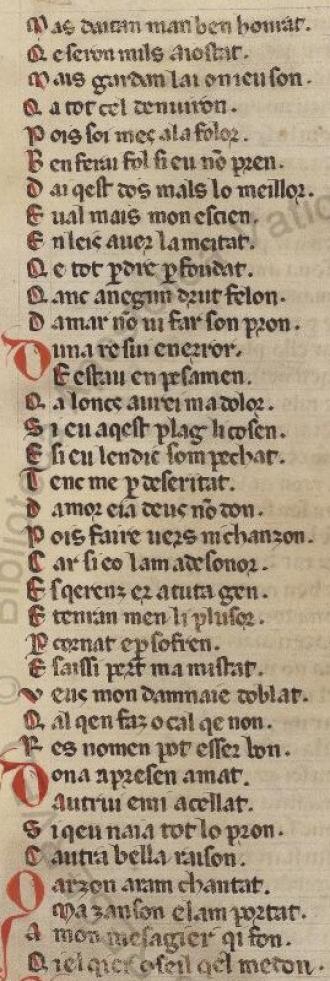 Mas dautan man ben honrat.
Q e seron mils aiostat.
Mais gardan lai on ieu son.
Q a tot cel denuiron.
Pois soi meç ala folor.
B en serai fol si eu nõ pren.
D aiqest dos mals lo meillor.
E ual mais mon escien.
E n leis auer la meitat.
Q e tot ꝑdre ꝑ foudat.
Q anc anegun drut felon.
D amar nõ ui far son pron.
Duna re sui en error.
E estau en pesamen.
Q a lonc aurei ma dolor.
S i eu aqest plag li cosen.
E si eu len dic som pechat.
T enc me ꝑ deseritat.
D amor e ia deus nõ don.
Pois faire uers ni chanzon.
C ar si eo lam a desonor.
E sqerenz er a tuta gen.
E tenran men li plusor.
P cornat e ꝑ sofren.
E saissi pert ma mistat.
V enc mon damnaie doblat.
Q al qen faz o cal qe non.
R es no men pot esser bon.
Dona apresen amat.
Autrui e mi a cellat.
S i qeu naia tot lo pron.
C autra bella raison.
Oarzon aram chantat.
Ma zanson e lam portat.
A mon mesagier qi fon.
Q iel qier cõseil qel me don.